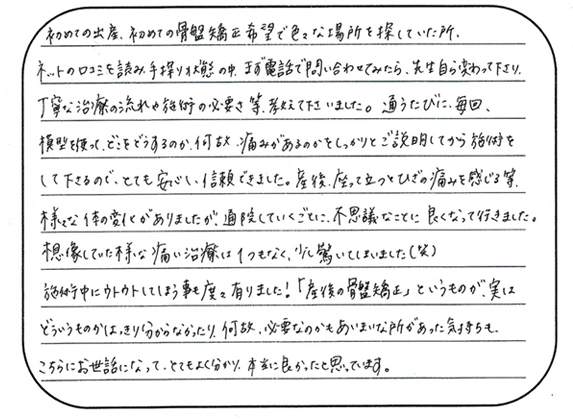 初めての出産、初めての骨盤矯正希望で色々な場所を探していた所、
ネットの口コミを読み、手探り状態の中、まず電話で問い合わせてみたら、先生自ら変わって下さり、
丁寧な治療の流れや施術の必要さ等、教えて下さいました。通うたびに、毎回、
模型を使って、どこをどうするのか、何故、痛みがあるのかをしっかりとご説明してから施術を
して下さるので、とても安心し、信頼できました。産後、座って立つとひざの痛みを感じる等、
様々な体の変化がありましたが、通院していくごとに、不思議なことに良くなって行きました。
想像していた様な痛い治療は1つもなく、少し驚いてしまいました(笑)
施術中にウトウトしてしまう事も度々有りました!「産後の骨盤矯正」というものが、実は
どういうものかはっきり分からなかったり、何故、必要なのかもあいまいな所があった気持ちも、
こちらにお世話になって、とてもよく分かり、本当に良かったと思っています。